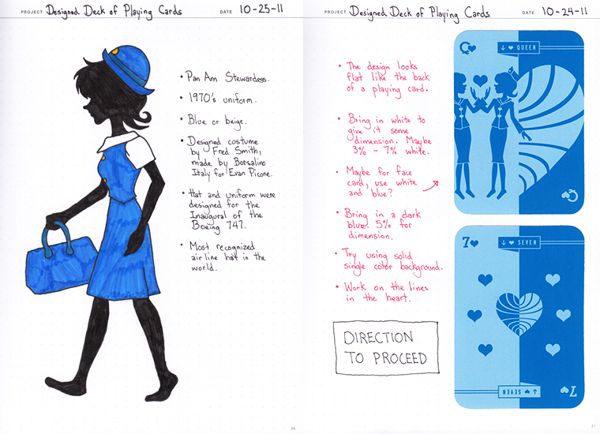 PROJECT Designed Deck of Playing Cards DATE 10-25-11
• Pan Am Stewardess.
• 1970's uniform.
• Blue or beige.
• Designed costume
by Fred Smith,
made by Borsalino
Italy for Evan Picone.
• Hat and uniform were
designed for the
Inaugural of the
Boeing 747.
• Most recognized
airline hat in the
world.
PROJECT Designed Deck of Playing Cards DATE 10-24-11
• The design looks
flat like the back
of a playing card.
• Bring in white to
give it some
dimension. Maybe
3% - 7% white.
• Maybe for face
card, use white
and blue?
• Bring in a dark
blue. 5% for
dimension.
• Try using solid
single color background.
• Work on the lines
in the heart.
DIRECTION
TO PROCEED
Q
↓ ♥ QUEEN
Q
7
↓ ♥ SEVEN
↓ ♥ SEVEN
7